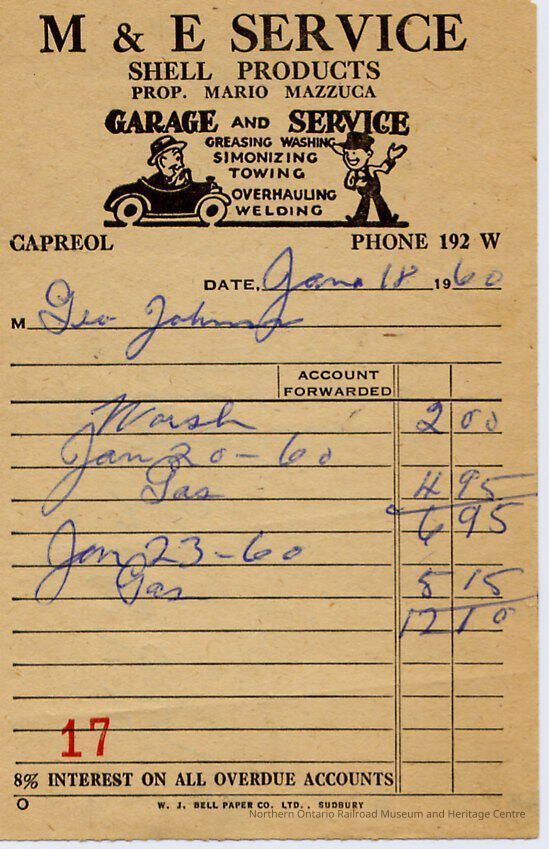 M & E SERVICE
SHELL PRODUCTS
PROP. MARIO MAZZUCA
GARAGE AND SERVICE
GREASING WASHING
SIMONIZING
TOWING
OVERHAULING
WELDING
CAPREOL PHONE 192 W
DATE, Jan. 18 1960
M Geo Johnson
ACCOUNT
FORWARDED
Wash 2 00
Jan 20-60
Gas 4 95
6 95
Jan 23-60
Gas 5 15
12 10
17
8% INTEREST ON ALL OVERDUE ACCOUNTS
W. J. BELL PAPER CO. LTD., SUDBURY
Northern Ontario Railroad Museum and Heritage Centre